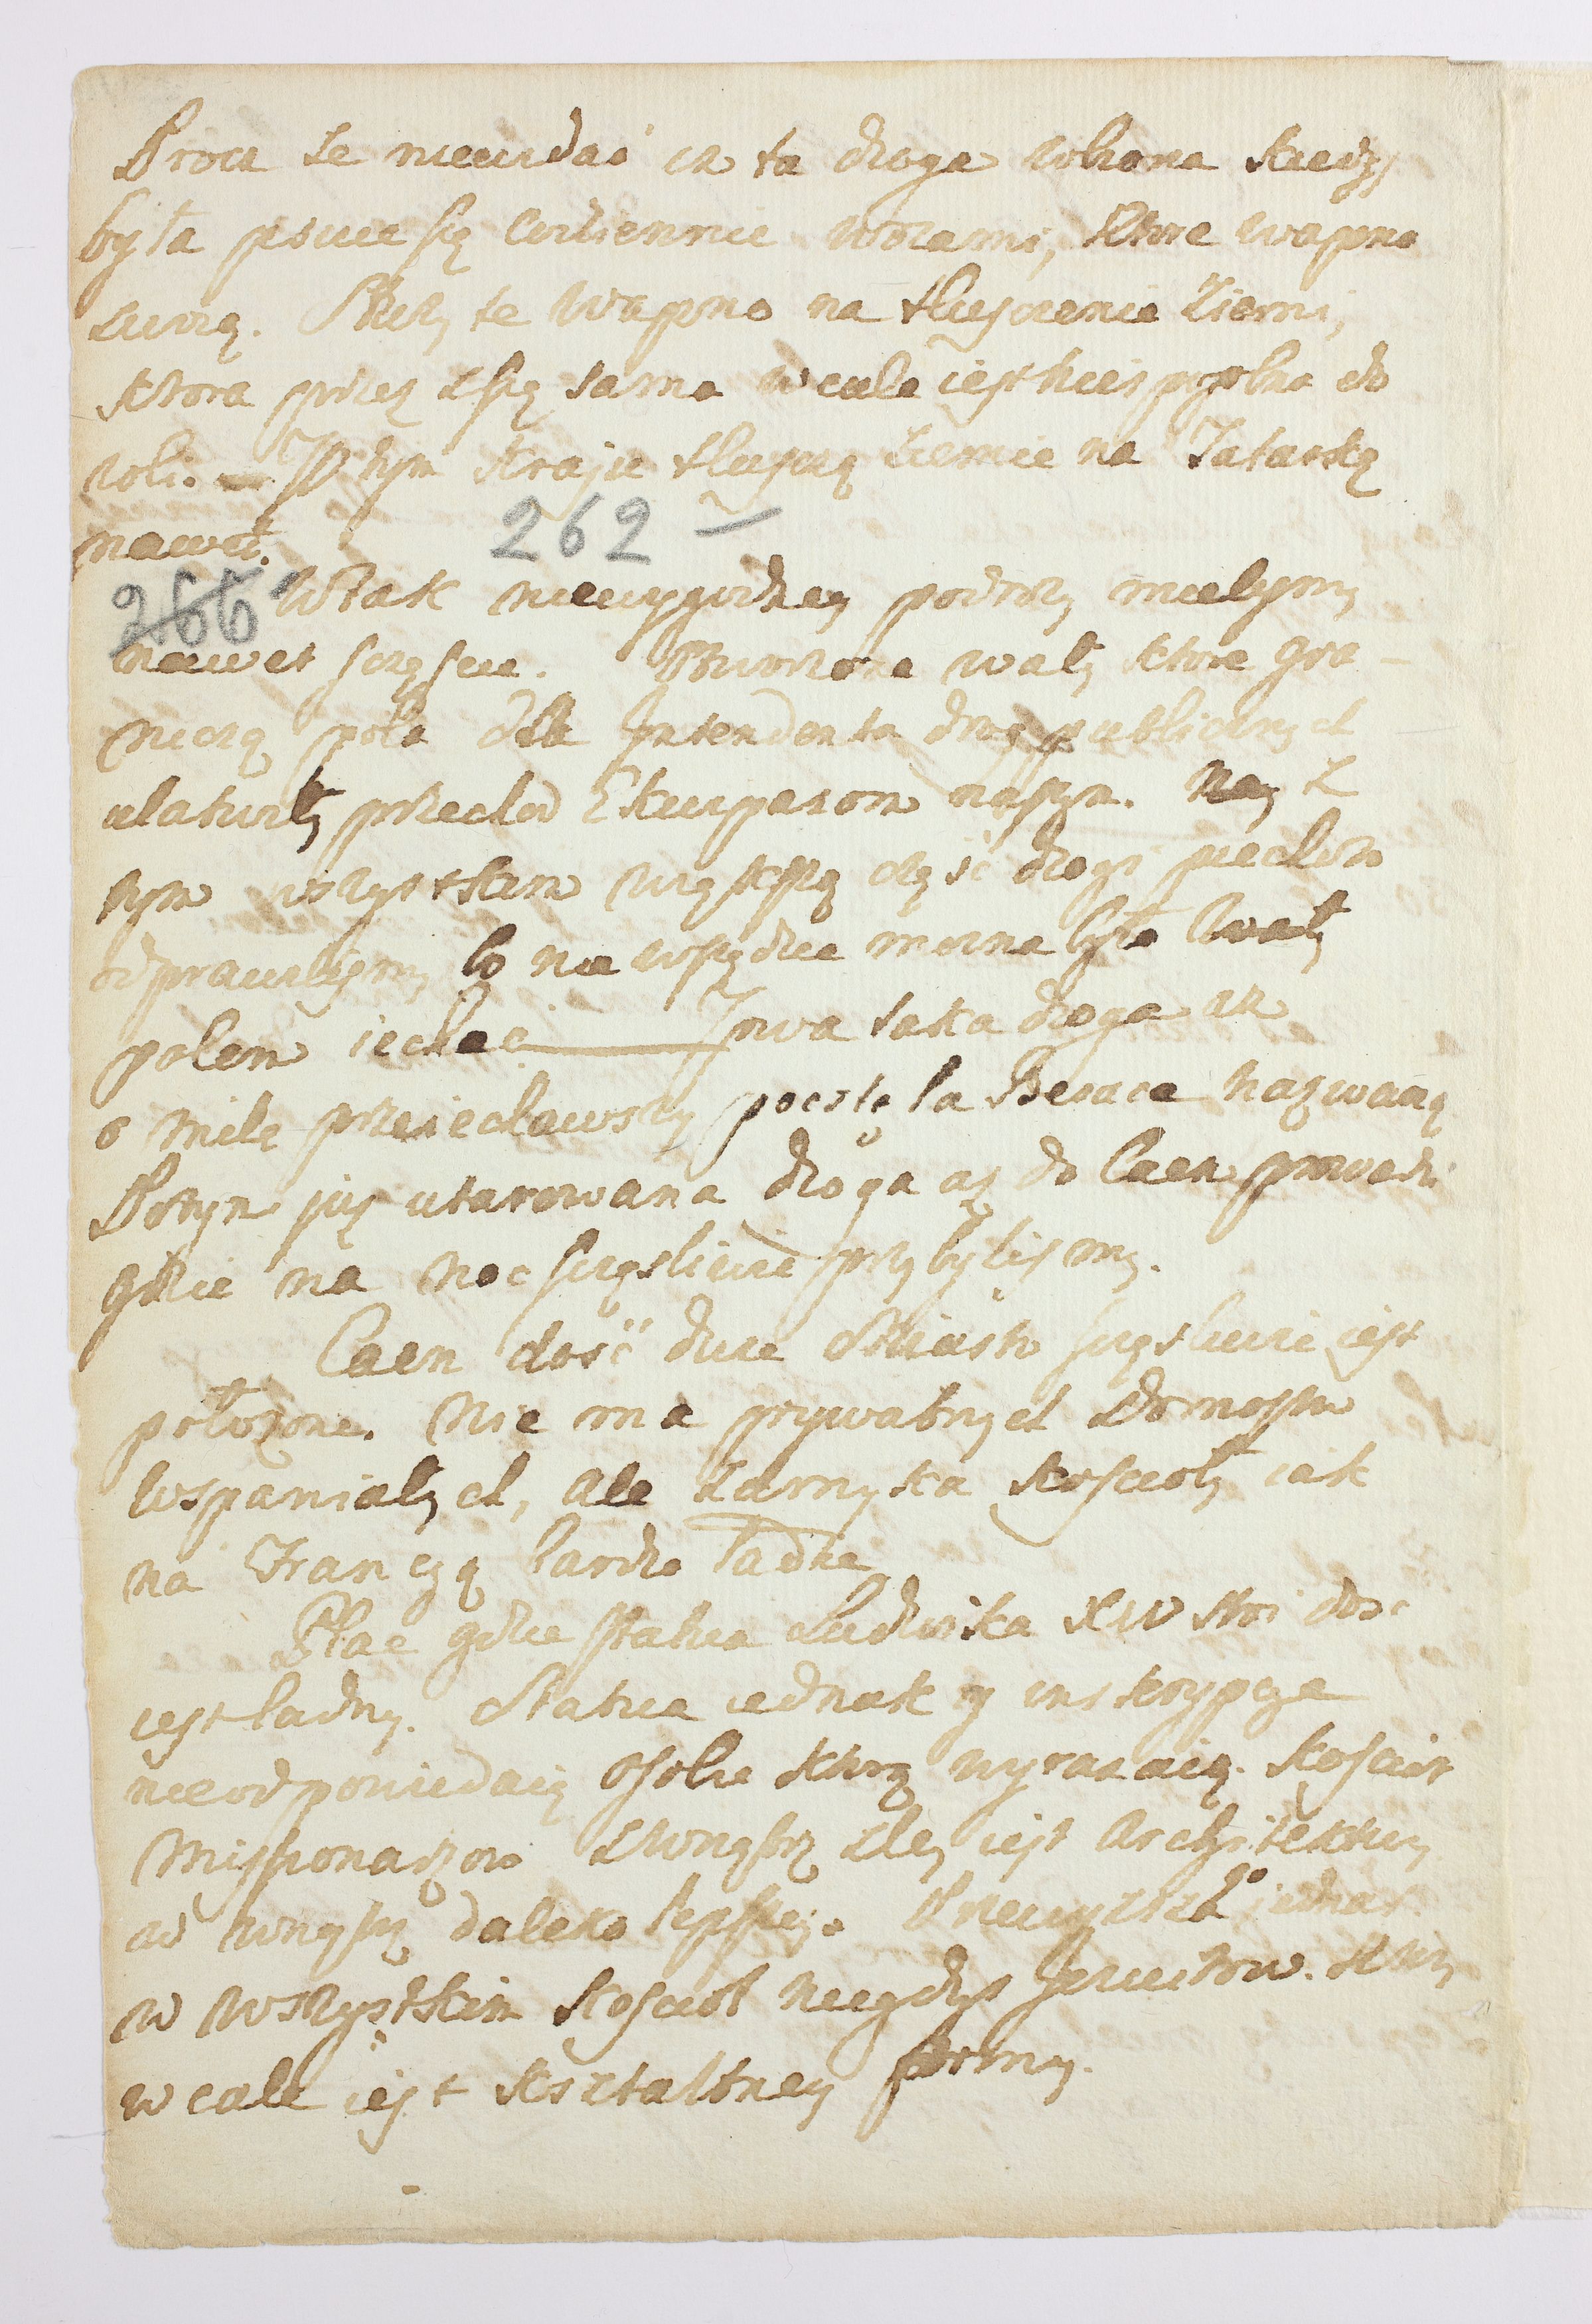 Procz ze niewidać iz ta droga robiona kiedy
była psuie się codziennie wozami, ktore wapno
zwożą. Służy te wapno na tłuszczenie ziemi,
ktora przez się sama wcale iest niesposobna do
roli. W tym kraju tłuszczą ziemie na Tatarkę
nawet.
262 –
266 W tak niewygodney podroży mielismy
nawet szczęscie. Otworzone wały ktore gra-
niczą pola dla Intendenta drog publicznych
ułatwiły przechod Ekwipażom naszym. Nay z
tym wszystkim większą część drogi piechoto
odprawilismy, bo nie wszędzie można było wały
polem iechać. Trwa taka droga az
o milę przeiechawszy pocztę la Besace nazwaną
Potym już utarowana droga aż do Caen prowadzi
gdzie na noc szczęsliwie przybylismy.
Caen dość duże Miasto szczęsliwie iest
położone. Nie ma prywatnych Domostw
wspaniałych, ale zamyka koscioły iak
na Francyą bardzo ładne
Plac gdzie statua Ludwika XIV stoi dosc
iest ładny. Statua iednak y inskrypcya
nieodpowiedaią osobie ktorą wyrazaią. Koscioł
Missionarzow zewnątrz złey iest Architektury
a wewnątrz daleko lepszey. Przewyzsza iednak
w wszystkim koscioł niegdys Jezuitow. ktory
wcale iest kształtney formy.